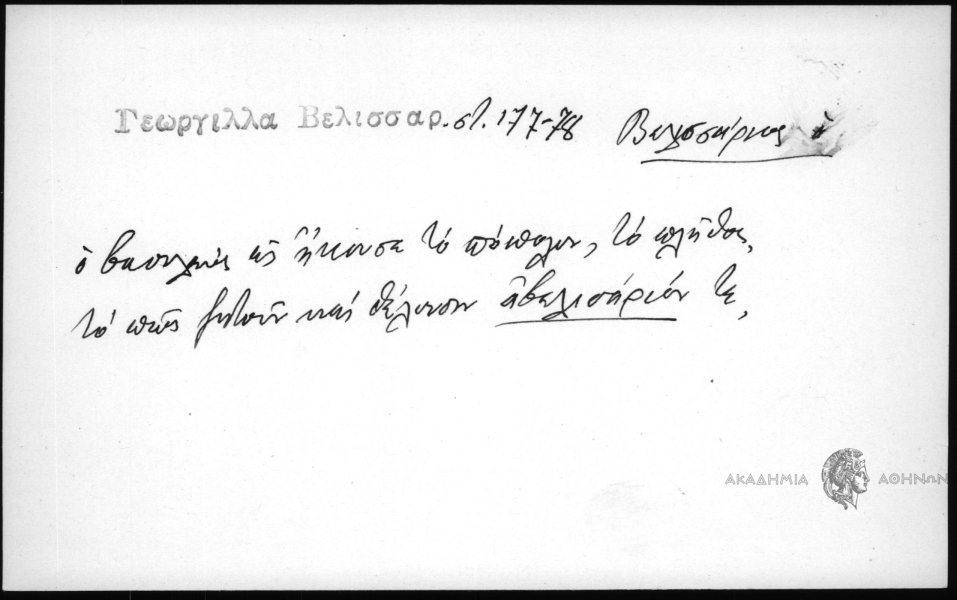 Γεωργιλλα Βελισσαρ. στ. 177-78 Βελισσάριος ὁ
ὁ βασιλεὺς ὡς ἤκουσε τό πόπολον, τό πλῆθος,
τό πῶς ζητοῦν καί θέλουσιν ἀβελισάριόν τε,
ΑΚΑΔΗΜΙΑ ΑΘΗΝΩΝ